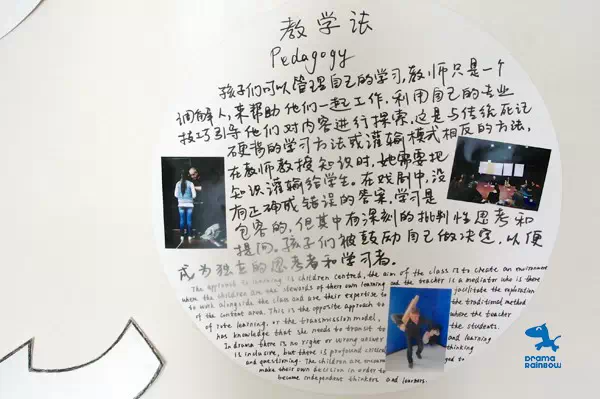 教学法
Pedagogy
孩子们可以管理自己的学习,教师只是一个
调解人,来帮助他们一起工作,利用自己的专业
技巧引导他们对内容进行探索,这是与传统死记
硬背的学习方法或灌输模式相反的方法,
在教师教授知识时,她需要把
知识灌输给学生。在戏剧中,没
有正确或错误的答案,学习是
包容的,但其中有深刻的批判性思考和
提问。孩子们被鼓励自己做决定,以便
成为独立的思考者和学习者。
The approach to learning is children centred, the aim of the class is to create an environment
where the children are the stewards of their own learning and the teacher is a mediator who is there
to work alongside the class and use their expertise to facilitate the exploration
of the content area. This is the opposite approach to the traditional method
of rote learning, or the transmission model, where the teacher
has knowledge that she needs to transit to the students.
In drama there is no right or wrong answer and learning
is inclusive, but there is profound critical thinking
and questioning. The children are encouraged to
make their own decision in order to
become independent thinkers and learners.
DRAMA
RAINBOW